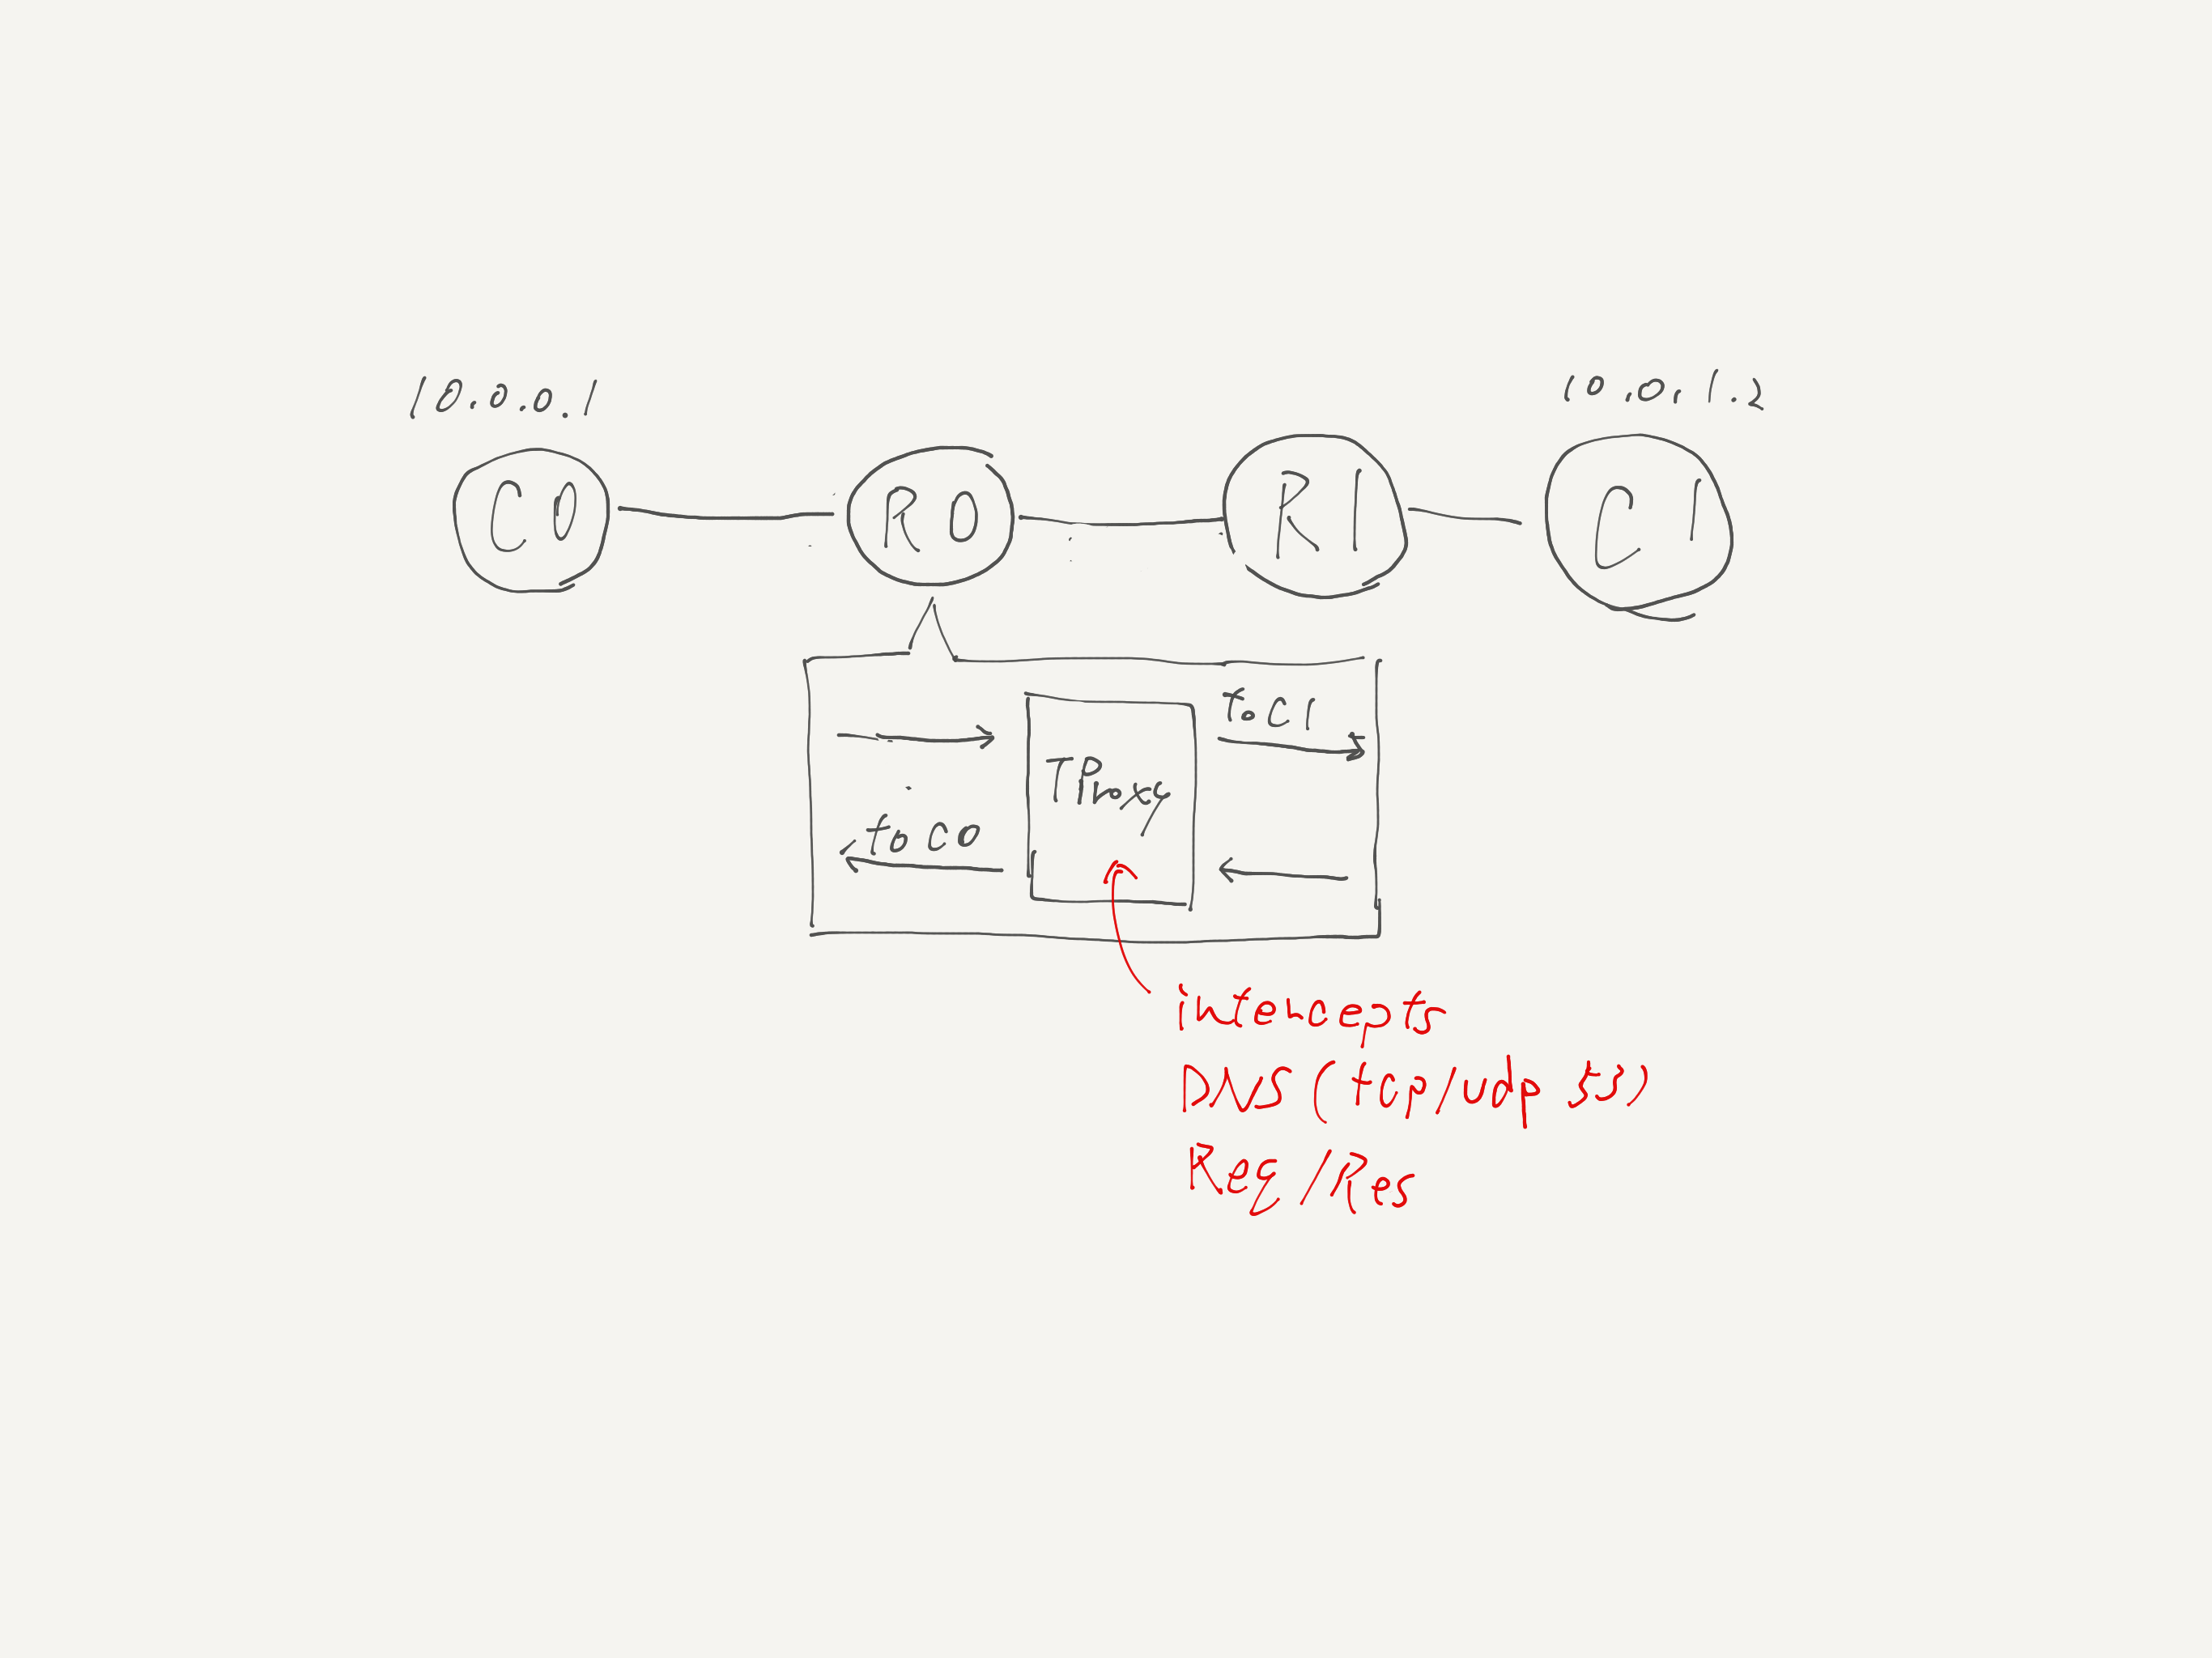 10.0.0.1
10.0.1.2
C0
R0
R1
C1
to C1
TProxy
to C0
intercepts
DNS (tcp/udp 53)
Req/Res